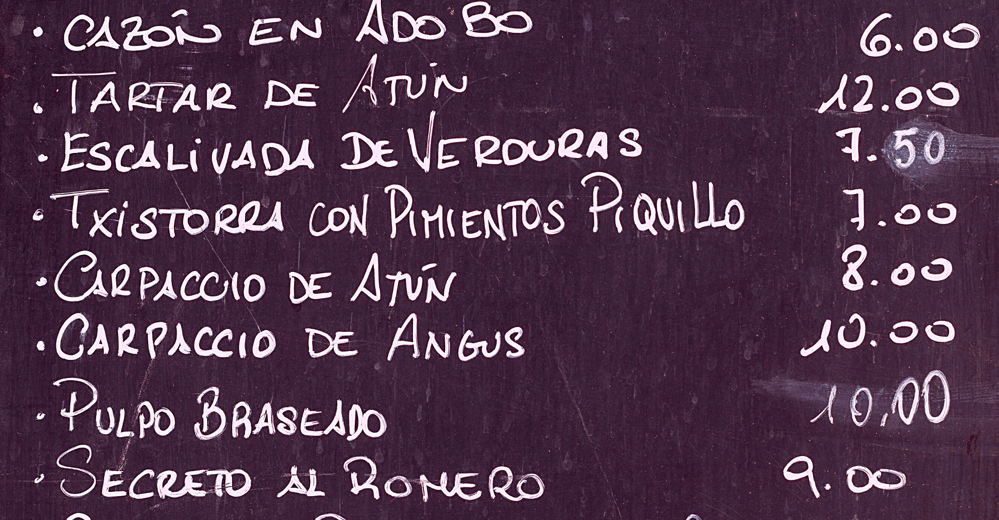 · CAZÓN EN ADOBO 6.00
· TARTAR DE ATÚN 12.00
· ESCALIVADA DE VERDURAS 7.50
· TXISTORRA CON PIMIENTOS PIQUILLO 7.00
· CARPACCIO DE ATÚN 8.00
· CARPACCIO DE ANGUS 10.00
· PULPO BRASEADO 10,00
· SECRETO AL ROMERO 9.00